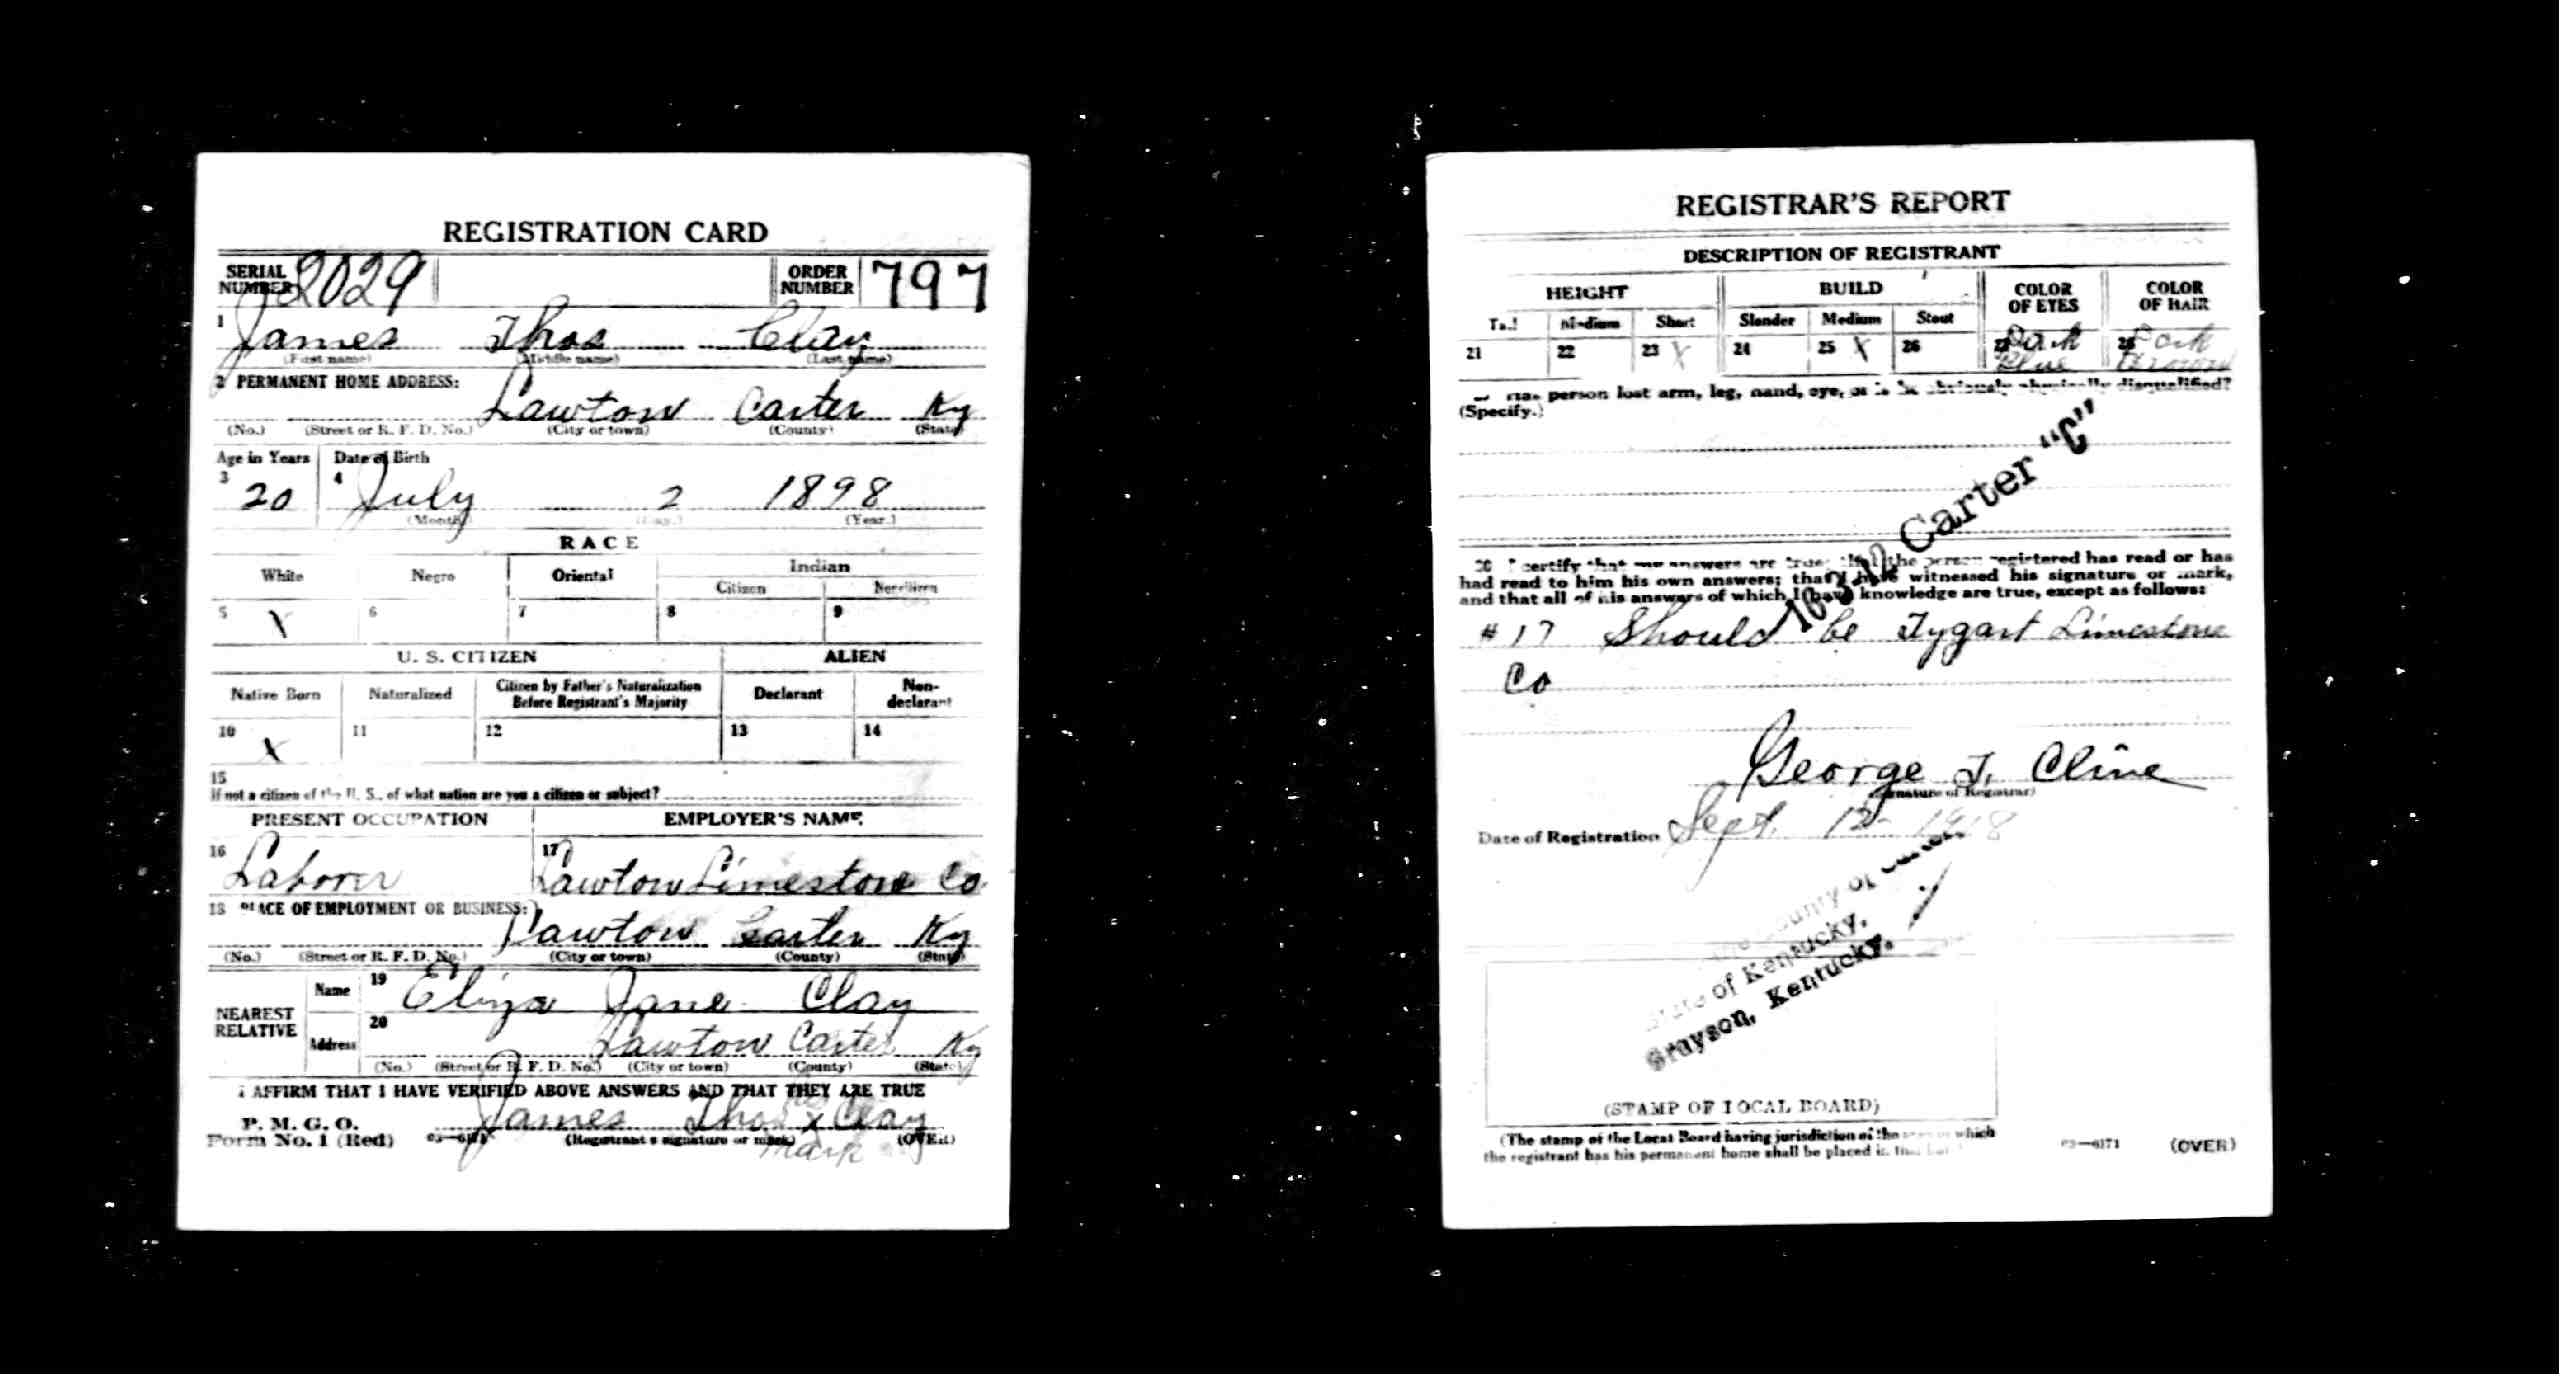 REGISTRATION CARD
SERIAL NUMBER 2029 ORDER NUMBER 797
1 James Thos Clay
(First name) (Middle name) (Last name)
2 PERMANENT HOME ADDRESS:
Lawton Carter Ky
(No.) (Street or R. F. D. No.) (City or town) (County) (State)
Age in Years Date of Birth
3 20 4 July 2 1898
(Month) (Day.) (Year.)
RACE
White Negro Oriental Indian
Citizen Noncitizen
5 X 6 7 8 9
U. S. CITIZEN ALIEN
Native Born Naturalized Citizen by Father's Naturalization Before Registrant's Majority Declarant Non-declarant
10 X 11 12 13 14
15
If not a citizen of the U. S., of what nation are you a citizen or subject?
PRESENT OCCUPATION EMPLOYER'S NAME
16 Laborer 17 Lawton Limestone Co
18 PLACE OF EMPLOYMENT OR BUSINESS:
Lawton Carter Ky
(No.) (Street or R. F. D. No.) (City or town) (County) (State)
NEAREST RELATIVE
Name 19 Eliza Jane Clay
Address 20 Lawton Carter Ky
(No.) (Street or R. F. D. No.) (City or town) (County) (State)
I AFFIRM THAT I HAVE VERIFIED ABOVE ANSWERS AND THAT THEY ARE TRUE
P. M. G. O.
Form No. 1 (Red) 03—6171 James Thos his X Clay
(Registrant's signature or mark) (OVER)
mark
REGISTRAR'S REPORT
DESCRIPTION OF REGISTRANT
HEIGHT BUILD COLOR OF EYES COLOR OF HAIR
Tall Medium Short Slender Medium Stout
21 22 23 X 24 25 X 26 27 Dark Blue 28 Dark Brown
29 Has person lost arm, leg, hand, eye, or is he obviously physically disqualified?
(Specify.)
10-3-12 Carter "C"
30 I certify that my answers are true; that the person registered has read or has
had read to him his own answers; that I have witnessed his signature or mark,
and that all of his answers of which I have knowledge are true, except as follows:
#17 Should be Tygart Limestone
Co
George T. Cline
(Signature of Registrar)
Date of Registration Sept. 12- 1918
County of Carter
State of Kentucky,
Grayson, Kentucky.
(STAMP OF LOCAL BOARD)
(The stamp of the Local Board having jurisdiction of the area in which
the registrant has his permanent home shall be placed in this box.)
03—6171 (OVER)